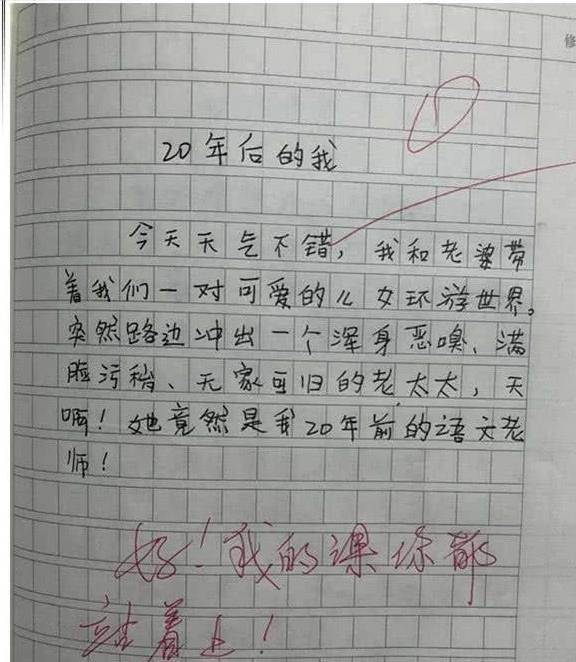 修
20年后的我
今天天气不错，我和老婆带
着我们一对可爱的儿女环游世界。
突然路边冲出一个浑身恶嗅、满
脸污秽、无家可归的老太太，天
啊！她竟然是我20年前的语文老
师！
好！我的课你都
站着上！